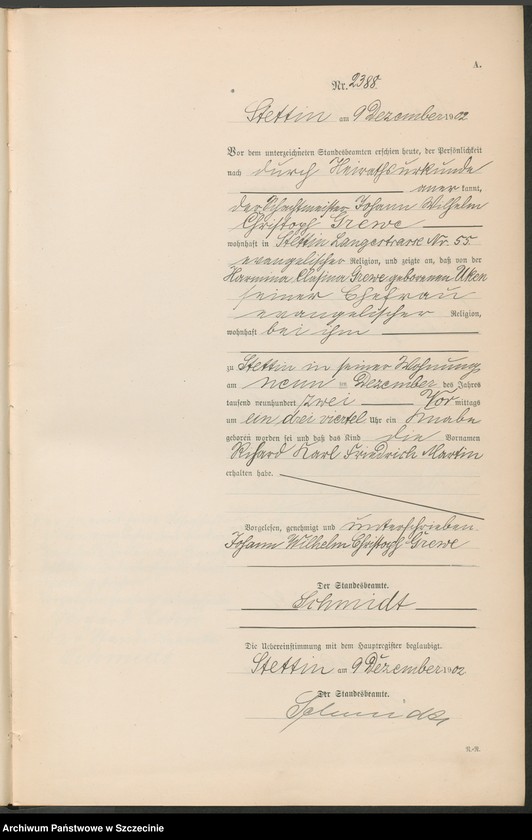 A.
Nr. 2388
Stettin am 9 Dezember 1902
Vor dem unterzeichneten Standesbeamten erschien heute, der Persönlichkeit
nach durch Heirathsurkunde
aner kannt,
der Schachtmeister Johann Wilhelm
Christoph Grewe
wohnhaft in Stettin Langestrasse Nr. 55
evangelischer Religion, und zeigte an, daß von der
Harmina Clasina Grewe geborenen Uken
seiner Ehefrau
evangelischer Religion,
wohnhaft bei ihm
zu Stettin in seiner Wohnung
am neun ten Dezember des Jahres
tausend neunhundert zwei Vor mittags
um ein drei viertel Uhr ein Knabe
geboren worden sei und daß das Kind die Vornamen
Rihard Karl Friedrich Martin
erhalten habe.
Vorgelesen, genehmigt und unterschrieben
Johann Wilhelm Christoph Grewe
Der Standesbeamte.
Schmidt
Die Uebereinstimmung mit dem Hauptregister beglaubigt.
Stettin am 9 Dezember 1902
Der Standesbeamte.
Schmidt
Archiwum Państwowe w Szczecinie